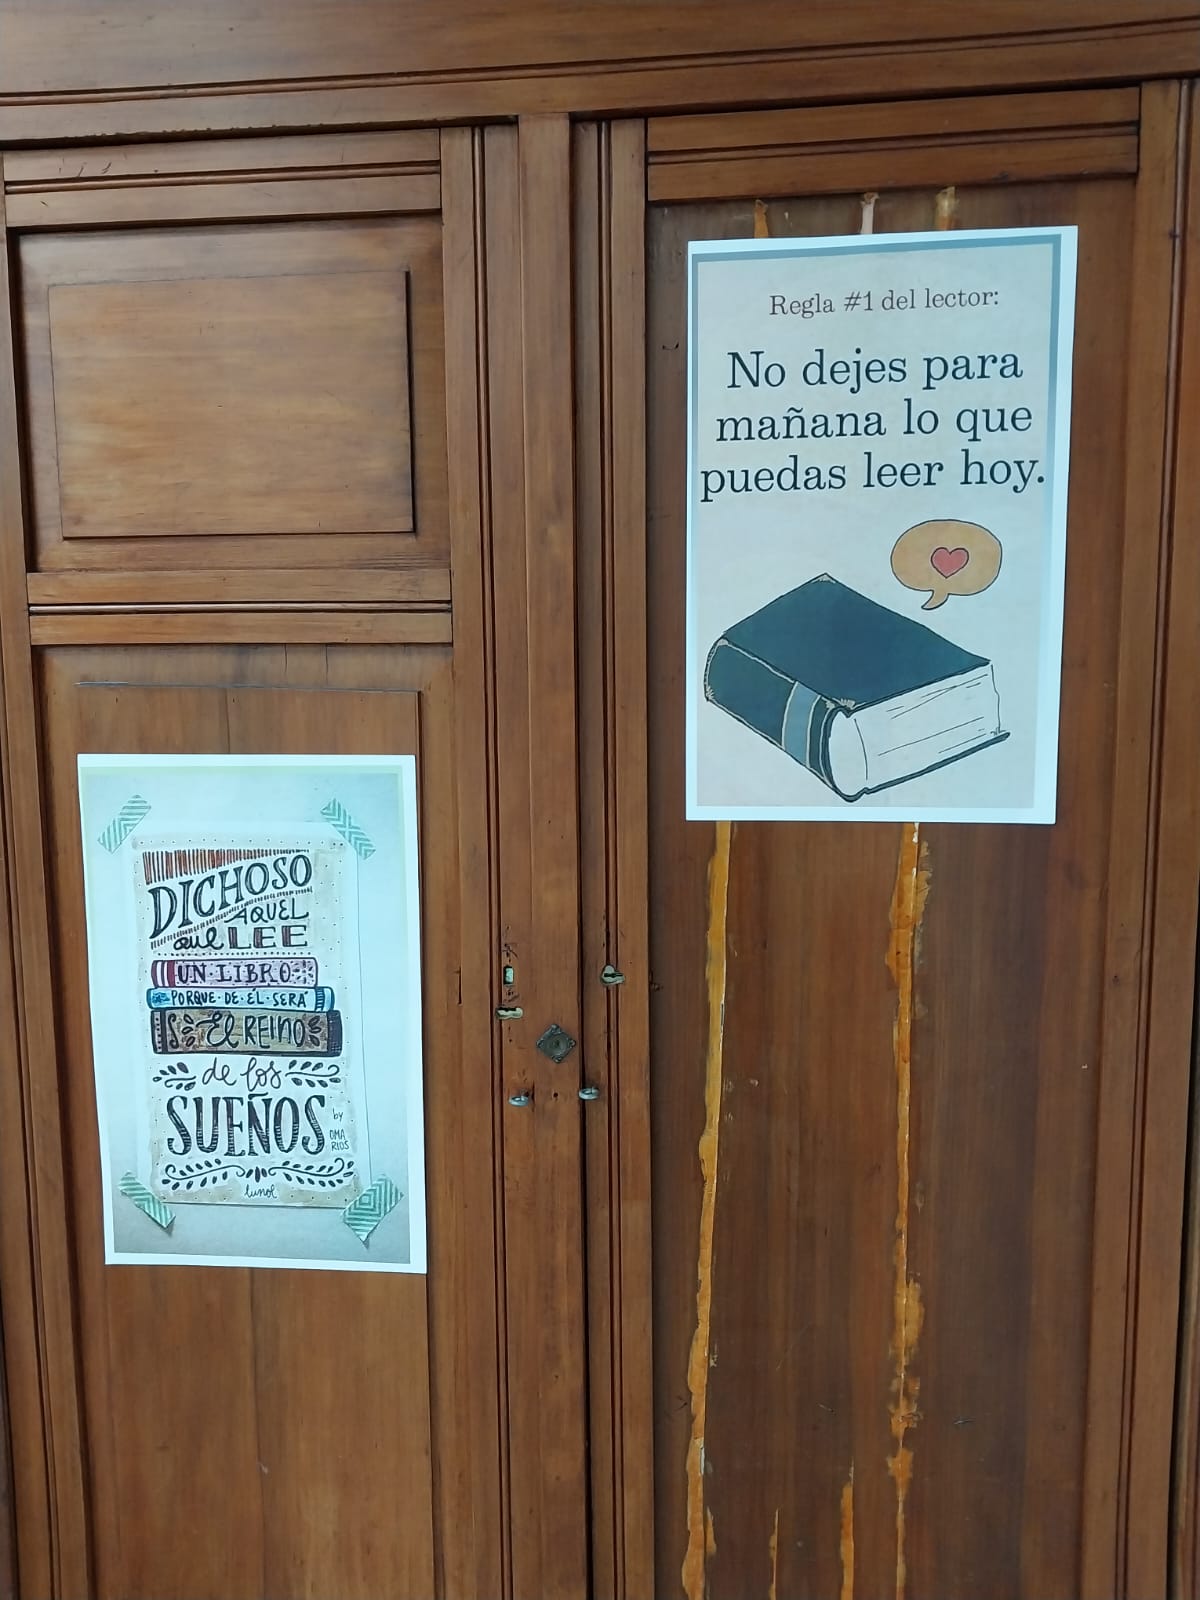 Regla #1 del lector:
No dejes para
mañana lo que
puedas leer hoy.
DICHOSO
AQUEL
que LEE
UN·LIBRO
PORQUE·DE·ÉL·SERÁ
El REINO
de los
SUEÑOS
by
OMA
RIOS
lunol